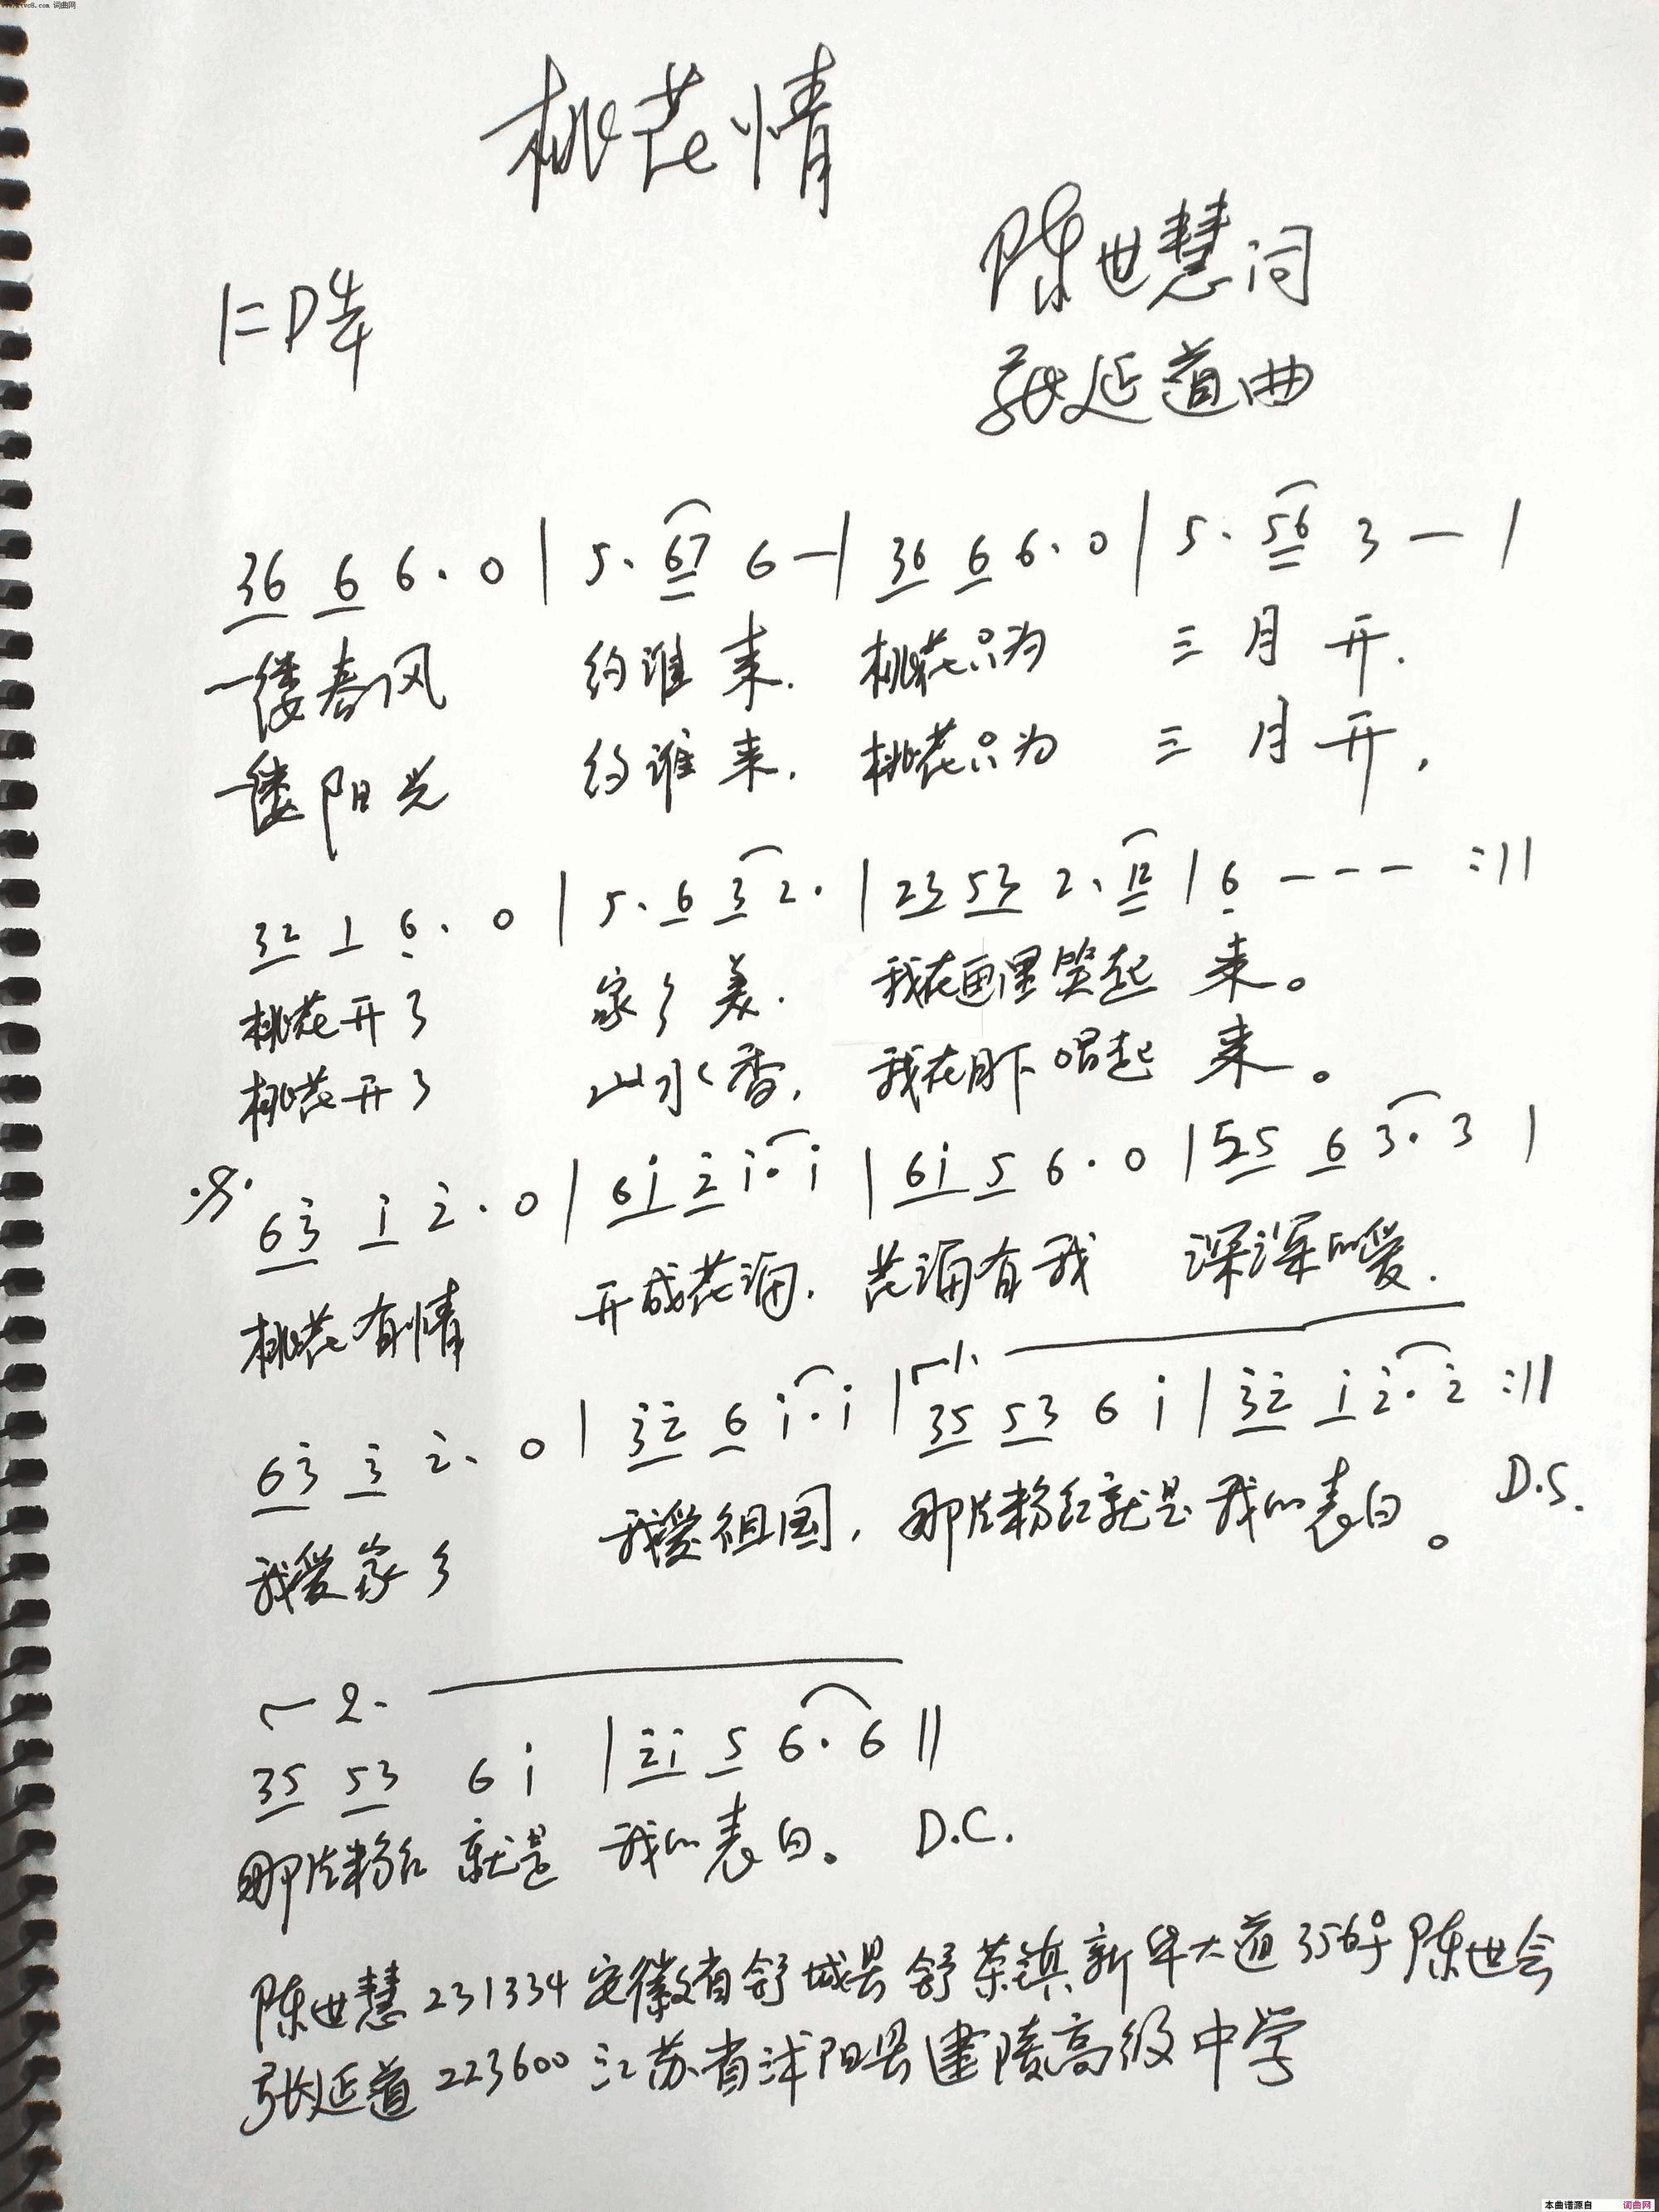 www.ktvc8.com 词曲网
桃花情
陈世慧词
1=D 4/4
张延道曲
36 6 6. 0 | 5. 67 6 — | 36 6 6. 0 | 5. 56 3 — |
一缕春风 约谁来. 桃花只为 三月开.
一缕阳光 约谁来, 桃花只为 三月开,
32 1 6̣. 0 | 5. 6 3 2. | 23 53 2. 12 | 6̣ - - - :||
桃花开了 家乡美. 我在画里笑起 来。
桃花开了 山水香, 我在月下唱起 来。
𝄋 63̇ 1̇ 2̇. 0 | 61̇ 2̇ 1̇. 1̇ | 61̇ 5 6. 0 | 55 6 3. 3 |
桃花有情 开成花海. 花海有我 深深的爱.
63̇ 3̇ 2̇. 0 | 3̇2̇ 6 1̇. 1̇ | 1. 35 53 6 1̇ | 3̇2̇ 1̇ 2̇. 2̇ :||
我爱家乡 我爱祖国, 那片粉红就是我的表白。 D.S.
2.
35 53 6 1̇ | 2̇1̇ 5 6. 6 ||
那片粉红 就是 我的表白。 D.C.
陈世慧 231334 安徽省舒城县舒茶镇新华大道356号陈世会
张延道 223600 江苏省沭阳县建陵高级中学
本曲谱源自 词曲网